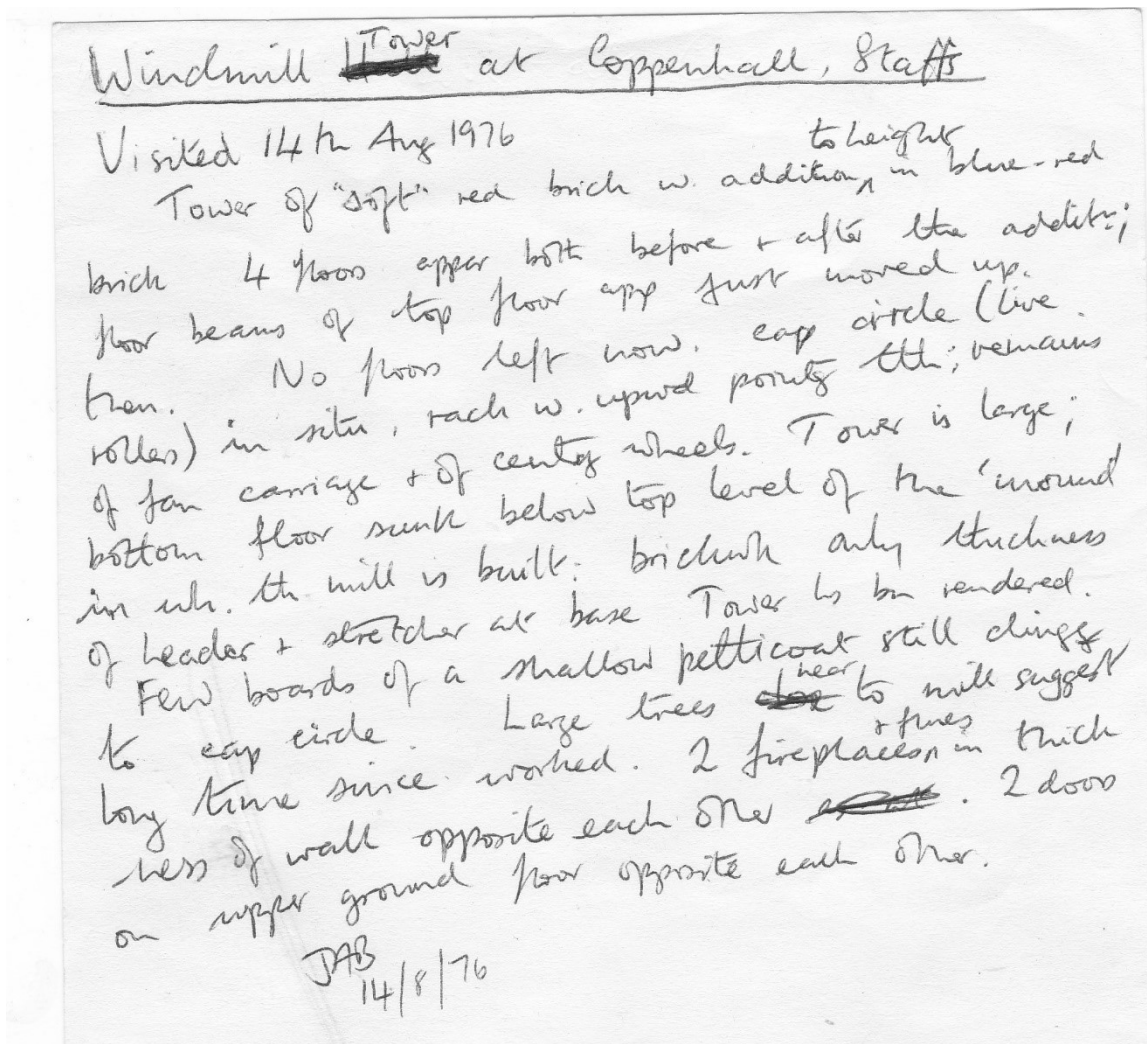 Windmill Tower at Coppenhall, Staffs
Visited 14th Aug 1976
Tower of "soft" red brick w. addition to height in blue-red
brick 4 floors appar both before + after the addit:;
floor beams of top floor app just moved up.
then. No floors left now. cap circle (live
rollers) in situ, rack w. upwd pointg tth; remains
of fan carriage + of centg wheels. Tower is large;
bottom floor sunk below top level of the 'mound'
in wh. th. mill is built: brickwk only thickness
of header + stretcher at base Tower hs bn rendered.
Few boards of a shallow petticoat still clingg
to cap circle. Large trees near to mill suggest
long time since worked. 2 fireplaces + flues in thick
ness of wall opposite each other. 2 doors
on upper ground floor opposite each other.
JAB
14/8/76